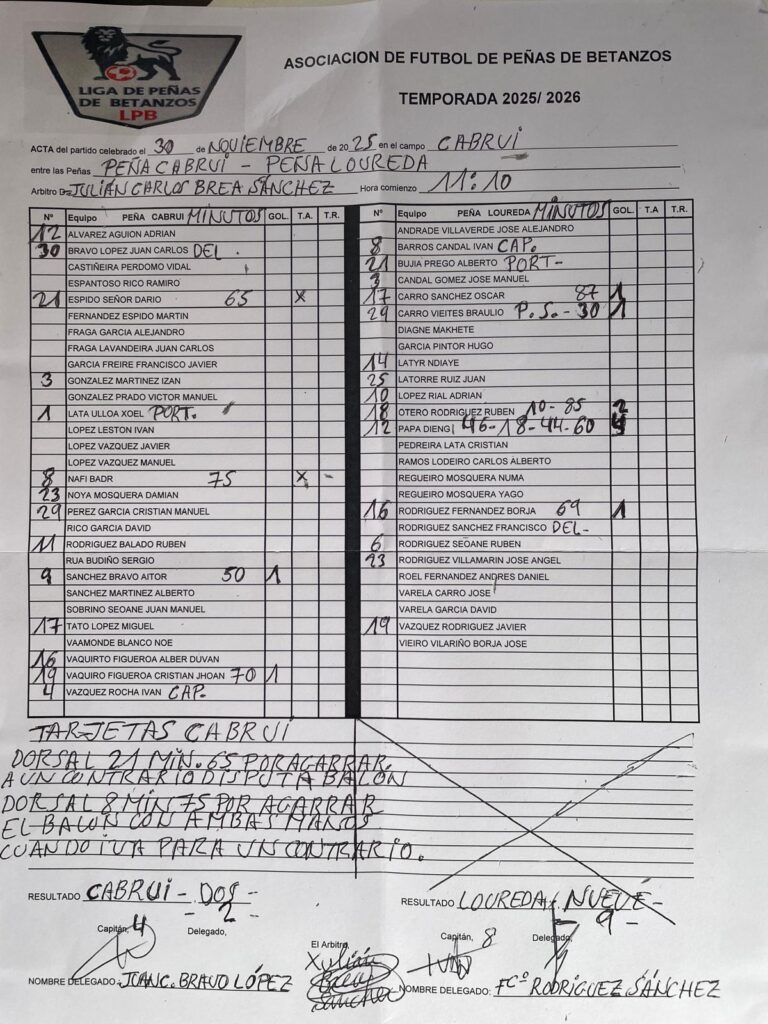 LIGA DE PEÑAS
DE BETANZOS
LPB
ASOCIACION DE FUTBOL DE PEÑAS DE BETANZOS
TEMPORADA 2025/ 2026
ACTA del partido celebrado el 30 de NOVIEMBRE de 2025 en el campo CABRUI
entre las Peñas PEÑA CABRUI - PEÑA LOUREDA
Arbitro D. JULIÁN CARLOS BREA SÁNCHEZ Hora comienzo 11:10
Nº Equipo PEÑA CABRUI MINUTOS GOL. T.A. T.R.
12 ALVAREZ AGUION ADRIAN
30 BRAVO LOPEZ JUAN CARLOS DEL.
CASTIÑEIRA PERDOMO VIDAL
ESPANTOSO RICO RAMIRO
21 ESPIDO SEÑOR DARIO 65 X
FERNANDEZ ESPIDO MARTIN
FRAGA GARCIA ALEJANDRO
FRAGA LAVANDEIRA JUAN CARLOS
GARCIA FREIRE FRANCISCO JAVIER
3 GONZALEZ MARTINEZ IZAN
GONZALEZ PRADO VICTOR MANUEL
1 LATA ULLOA XOEL PORT.
LOPEZ LESTON IVAN
LOPEZ VAZQUEZ JAVIER
LOPEZ VAZQUEZ MANUEL
8 NAFI BADR 75 X -
23 NOYA MOSQUERA DAMIAN
29 PEREZ GARCIA CRISTIAN MANUEL
RICO GARCIA DAVID
11 RODRIGUEZ BALADO RUBEN
RUA BUDIÑO SERGIO
9 SANCHEZ BRAVO AITOR 50 1
SANCHEZ MARTINEZ ALBERTO
SOBRINO SEOANE JUAN MANUEL
17 TATO LOPEZ MIGUEL
VAAMONDE BLANCO NOE
16 VAQUIRTO FIGUEROA ALBER DUVAN
19 VAQUIRO FIGUEROA CRISTIAN JHOAN 70 1
4 VAZQUEZ ROCHA IVAN CAP.
Nº Equipo PEÑA LOUREDA MINUTOS GOL. T.A T.R.
ANDRADE VILLAVERDE JOSE ALEJANDRO
8 BARROS CANDAL IVAN CAP.
21 BUJIA PREGO ALBERTO PORT-
3 CANDAL GOMEZ JOSE MANUEL
17 CARRO SANCHEZ OSCAR 87 1
29 CARRO VIEITES BRAULIO P.S.-30 1
DIAGNE MAKHETE
GARCIA PINTOR HUGO
14 LATYR NDIAYE
25 LATORRE RUIZ JUAN
10 LOPEZ RIAL ADRIAN
18 OTERO RODRIGUEZ RUBEN 10-85 2
12 PAPA DIENG 46-18-44-60 4
PEDREIRA LATA CRISTIAN
RAMOS LODEIRO CARLOS ALBERTO
REGUEIRO MOSQUERA NUMA
REGUEIRO MOSQUERA YAGO
16 RODRIGUEZ FERNANDEZ BORJA 69 1
RODRIGUEZ SANCHEZ FRANCISCO DEL-
6 RODRIGUEZ SEOANE RUBEN
23 RODRIGUEZ VILLAMARIN JOSE ANGEL
ROEL FERNANDEZ ANDRES DANIEL
VARELA CARRO JOSE
VARELA GARCIA DAVID
19 VAZQUEZ RODRIGUEZ JAVIER
VIEIRO VILARIÑO BORJA JOSE
TARJETAS CABRUI
DORSAL 21 MIN. 65 POR AGARRAR
A UN CONTRARIO DISPUTA BALÓN
DORSAL 8 MIN 75 POR AGARRAR
EL BALON CON AMBAS MANOS
CUANDO IVA PARA UN CONTRARIO.
RESULTADO CABRUI - DOS -
- 2 -
RESULTADO LOUREDA - NUEVE -
- 9 -
Capitán, 4 Delegado,
El Arbitro,
Capitán, 8 Delegado,
Xulián
Brea
Sánchez
IVAN
NOMBRE DELEGADO: JUAN C. BRAVO LÓPEZ
NOMBRE DELEGADO: FCº RODRÍGUEZ SÁNCHEZ